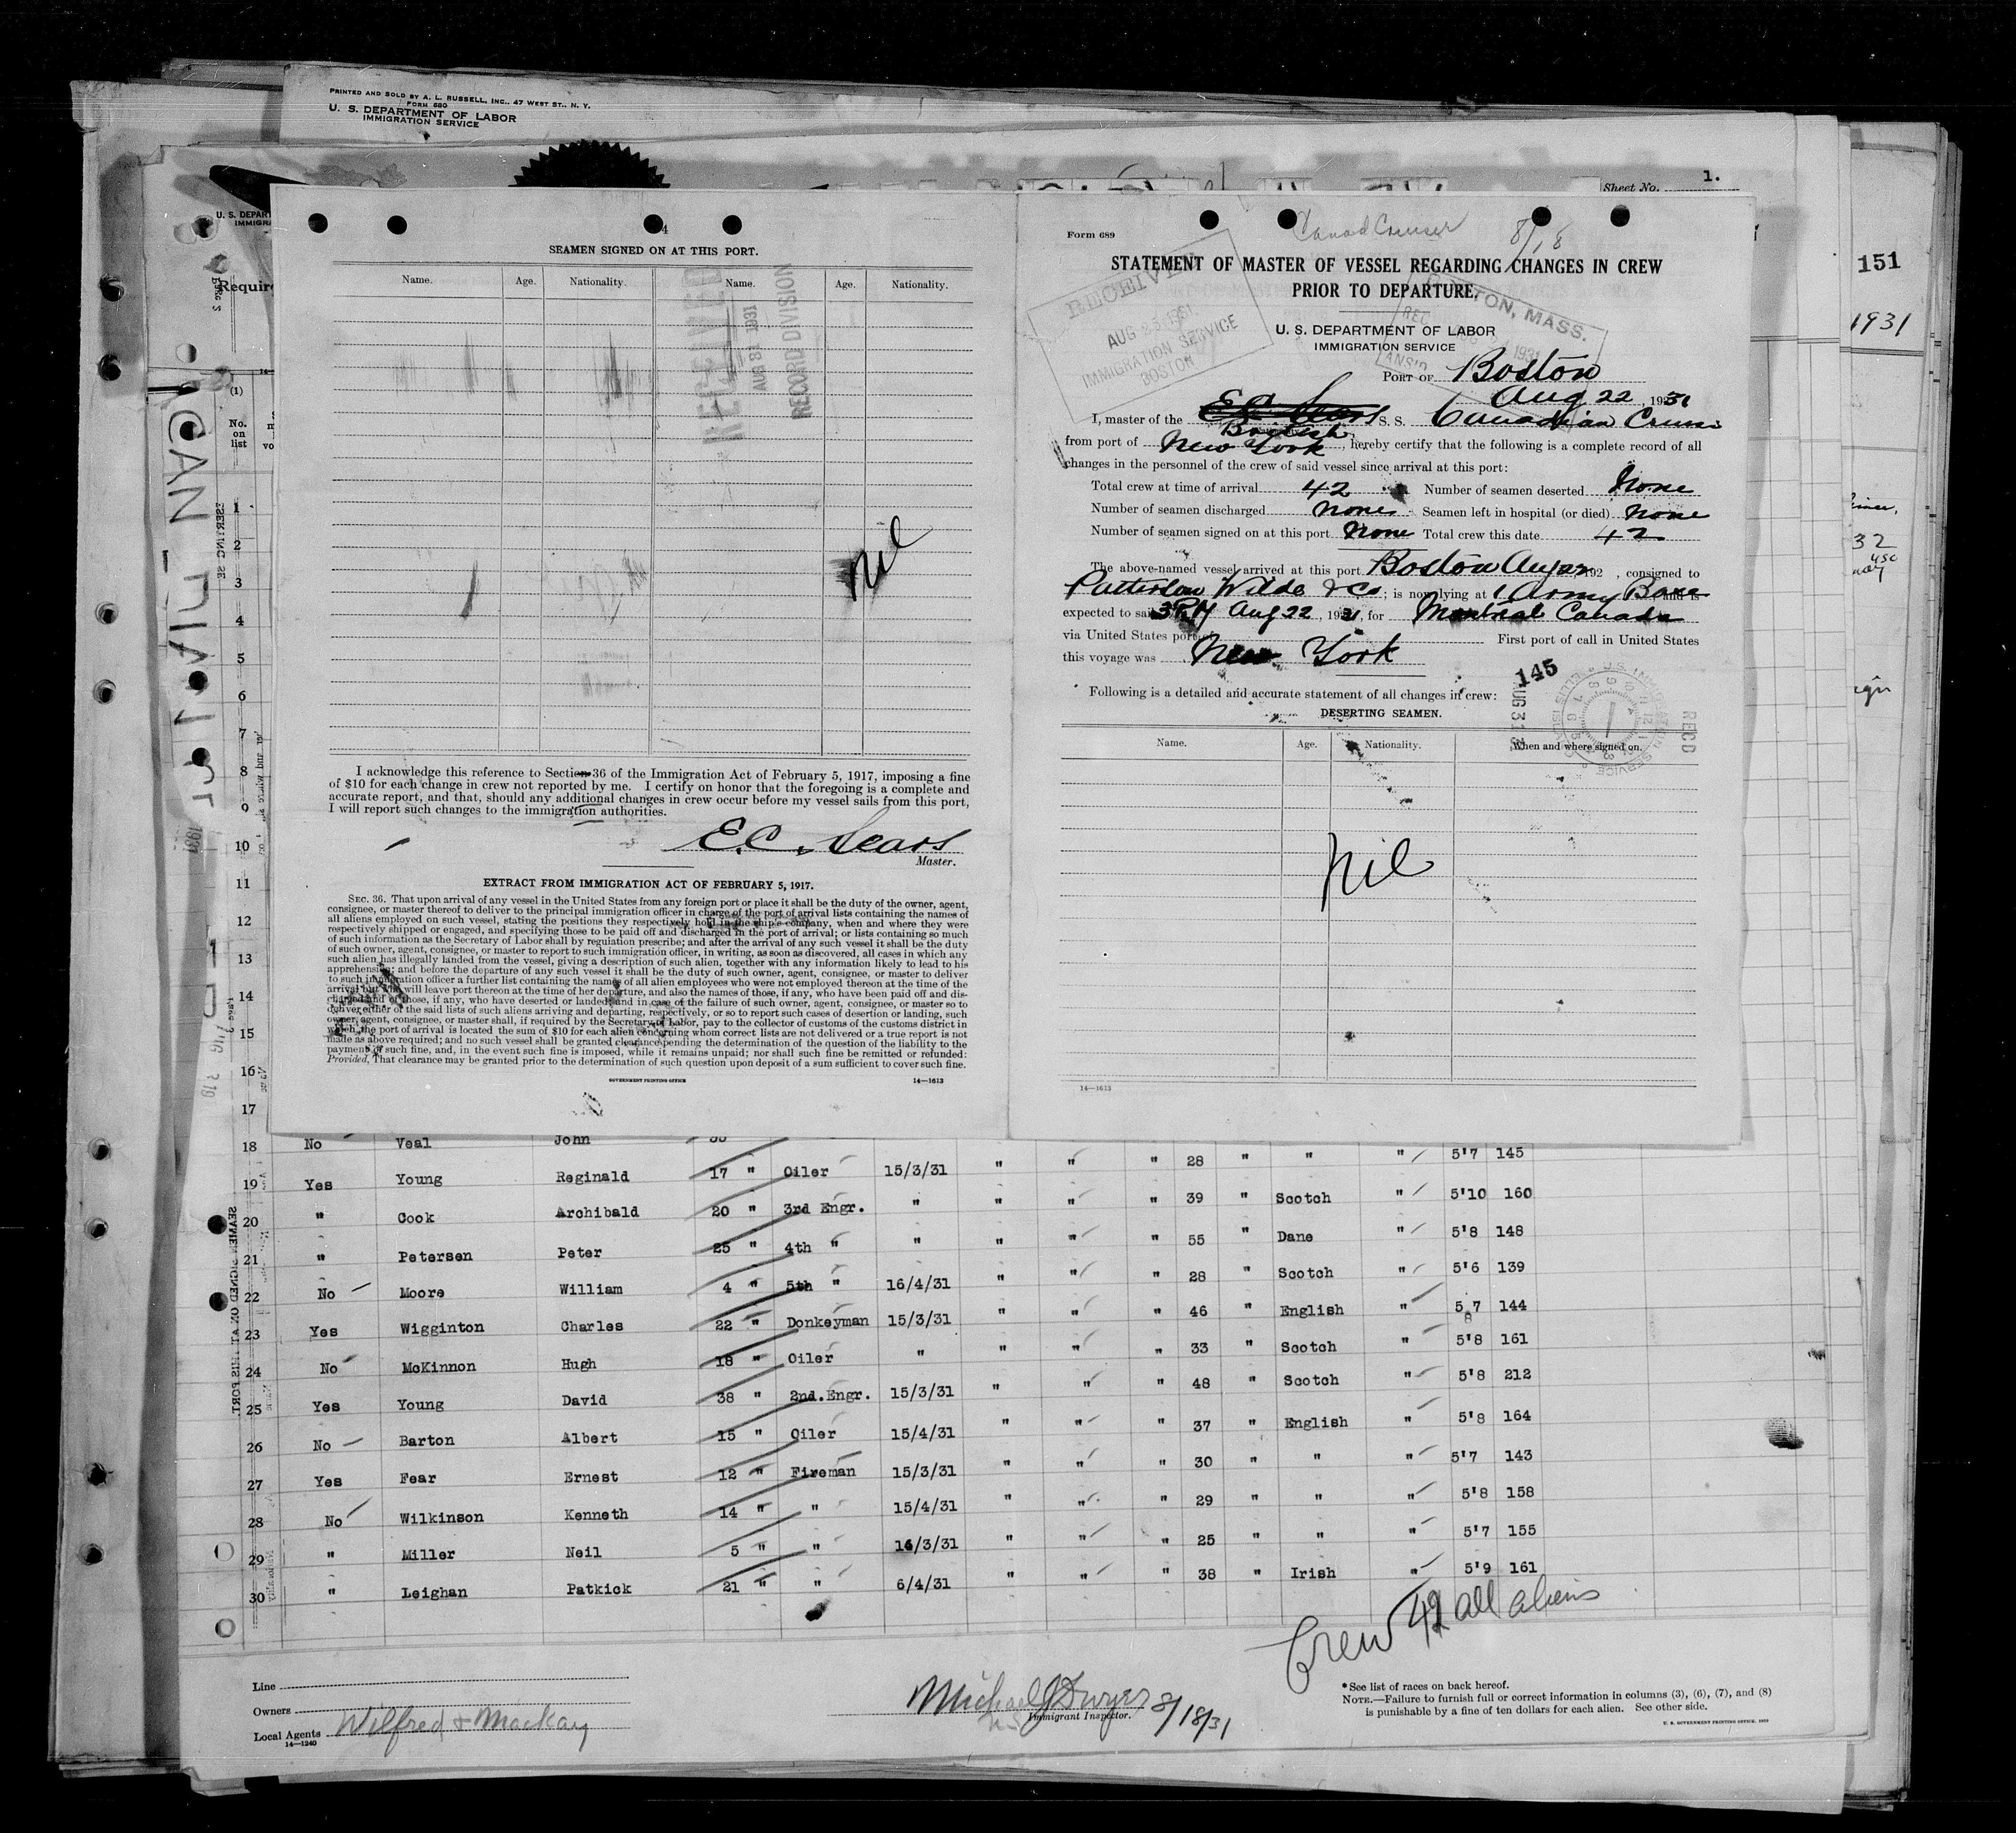 PRINTED AND SOLD BY A. L. RUSSELL, INC., 47 WEST ST., N. Y.
FORM 680
U. S. DEPARTMENT OF LABOR
IMMIGRATION SERVICE
Sheet No. 1.
151
1931
SEAMEN SIGNED ON AT THIS PORT.
Name. Age. Nationality. Name. Age. Nationality.
RECEIVED
AUG 31 1931
RECORD DIVISION
nil
I acknowledge this reference to Section 36 of the Immigration Act of February 5, 1917, imposing a fine
of $10 for each change in crew not reported by me. I certify on honor that the foregoing is a complete and
accurate report, and that, should any additional changes in crew occur before my vessel sails from this port,
I will report such changes to the immigration authorities.
E.C. Sears
Master.
EXTRACT FROM IMMIGRATION ACT OF FEBRUARY 5, 1917.
SEC. 36. That upon arrival of any vessel in the United States from any foreign port or place it shall be the duty of the owner, agent,
consignee, or master thereof to deliver to the principal immigration officer in charge of the port of arrival lists containing the names of
all aliens employed on such vessel, stating the positions they respectively hold in the ship's company, when and where they were
respectively shipped or engaged, and specifying those to be paid off and discharged in the port of arrival; or lists containing so much
of such information as the Secretary of Labor shall by regulation prescribe; and after the arrival of any such vessel it shall be the duty
of such owner, agent, consignee, or master to report to such immigration officer, in writing, as soon as discovered, all cases in which any
such alien has illegally landed from the vessel, giving a description of such alien, together with any information likely to lead to his
apprehension; and before the departure of any such vessel it shall be the duty of such owner, agent, consignee, or master to deliver
to such immigration officer a further list containing the names of all alien employees who were not employed thereon at the time of the
arrival but who will leave port thereon at the time of her departure, and also the names of those, if any, who have been paid off and dis-
charged and of those, if any, who have deserted or landed; and in case of the failure of such owner, agent, consignee, or master so to
deliver either of the said lists of such aliens arriving and departing, respectively, or so to report such cases of desertion or landing, such
owner, agent, consignee, or master shall, if required by the Secretary of Labor, pay to the collector of customs of the customs district in
which the port of arrival is located the sum of $10 for each alien concerning whom correct lists are not delivered or a true report is not
made as above required; and no such vessel shall be granted clearance pending the determination of the question of the liability to the
payment of such fine, and, in the event such fine is imposed, while it remains unpaid; nor shall such fine be remitted or refunded:
Provided, That clearance may be granted prior to the determination of such question upon deposit of a sum sufficient to cover such fine.
GOVERNMENT PRINTING OFFICE 14—1613
Form 689
Canad Cruiser 8/18
STATEMENT OF MASTER OF VESSEL REGARDING CHANGES IN CREW
PRIOR TO DEPARTURE.
RECEIVED
IMMIGRATION SERVICE
BOSTON
BOSTON, MASS.
U. S. DEPARTMENT OF LABOR
IMMIGRATION SERVICE
PORT OF Boston
Aug 22, 1931
I, master of the British S. S. Canadian Cruiser
from port of New York, hereby certify that the following is a complete record of all
changes in the personnel of the crew of said vessel since arrival at this port:
Total crew at time of arrival 42 Number of seamen deserted None
Number of seamen discharged none Seamen left in hospital (or died) None
Number of seamen signed on at this port None Total crew this date 42
The above-named vessel arrived at this port Boston Aug 22 192 , consigned to
Patterson Wilde & Co; is now lying at 1 Army Base and is
expected to sail 3 PM Aug 22, 1931, for Montreal Canada
via United States port of First port of call in United States
this voyage was New York
145
REC'D
Following is a detailed and accurate statement of all changes in crew:
DESERTING SEAMEN.
Name. Age. Nationality. When and where signed on.
nil
14—1613
18 No Veal John 35 " 28 " " " 5'7 145
19 Yes Young Reginald 17 " Oiler 15/3/31 " " " 39 " Scotch " 5'10 160
20 " Cook Archibald 20 " 3rd Engr. " " " " 55 " Dane " 5'8 148
21 " Petersen Peter 25 " 4th " " " " " 28 " Scotch " 5'6 139
22 No Moore William 4 " 5th " 16/4/31 " " " 46 " English " 5 7 144
23 Yes Wigginton Charles 22 " Donkeyman 15/3/31 " " " 33 " Scotch " 5'8 161
24 No McKinnon Hugh 18 " Oiler " " " " 48 " Scotch " 5'8 212
25 Yes Young David 38 " 2nd.Engr. 15/3/31 " " " 37 " English " 5'8 164
26 No Barton Albert 15 " Oiler 15/4/31 " " " 30 " " " 5'7 143
27 Yes Fear Ernest 12 " Fireman 15/3/31 " " " 29 " " " 5'8 158
28 No Wilkinson Kenneth 14 " " 15/4/31 " " " 25 " " " 5'7 155
29 " Miller Neil 5 " " 16/3/31 " " " 38 " Irish " 5'9 161
30 " Leighan Patkick 21 " " 6/4/31
Crew 42 all aliens
Line
Owners
Local Agents Wilfred & Mackay
14—1240
Michael J Dwyer 8/18/31
Immigrant Inspector.
*See list of races on back hereof.
NOTE.—Failure to furnish full or correct information in columns (3), (6), (7), and (8)
is punishable by a fine of ten dollars for each alien. See other side.
U. S. GOVERNMENT PRINTING OFFICE